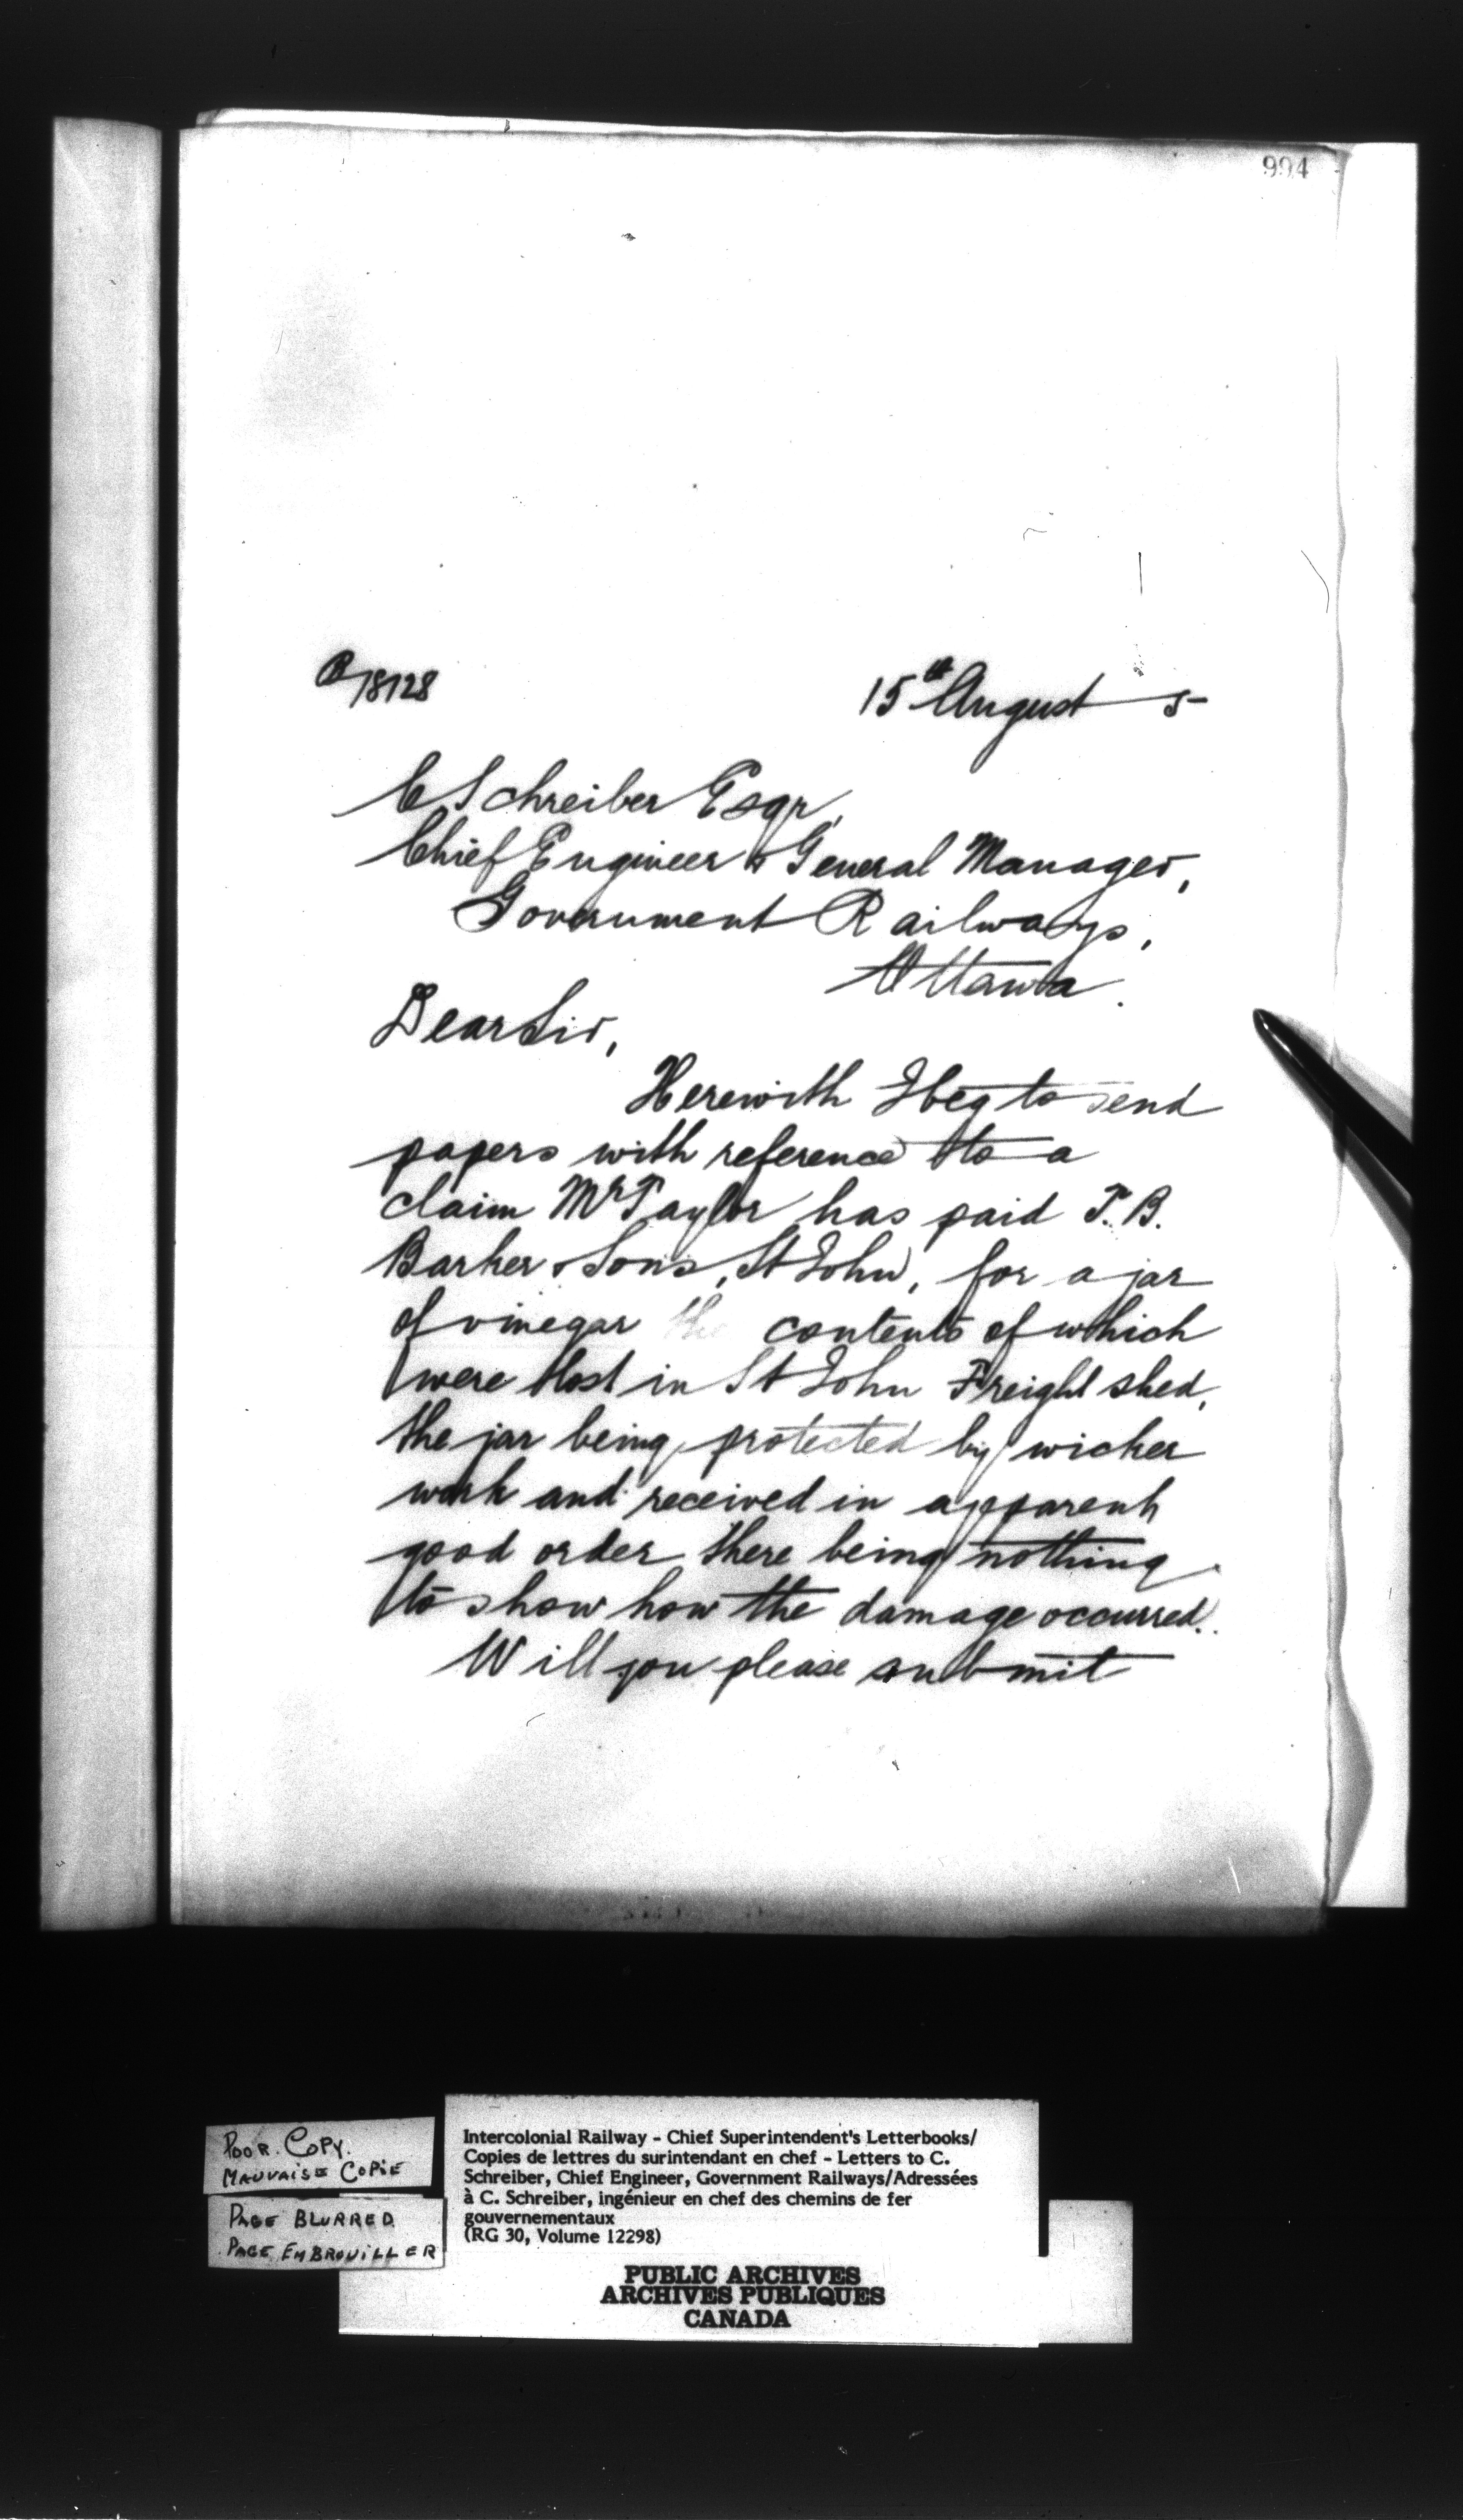 994
B/18128
15th August 5
C Schreiber Esqr,
Chief Engineer & General Manager,
Government Railways,
Ottawa.
Dear Sir,
Herewith I beg to send
papers with reference to a
claim Mr Taylor has paid T. B.
Barker & Sons, St John, for a jar
of vinegar the contents of which
were lost in St John Freight shed,
the jar being protected by wicker
work and received in apparent
good order there being nothing
to show how the damage occurred.
Will you please submit
POOR. COPY.
MAUVAISE COPIE
PAGE BLURRED
PAGE EMBROUILLER
Intercolonial Railway - Chief Superintendent's Letterbooks/
Copies de lettres du surintendant en chef - Letters to C.
Schreiber, Chief Engineer, Government Railways/Adressées
à C. Schreiber, ingénieur en chef des chemins de fer
gouvernementaux
(RG 30, Volume 12298)
PUBLIC ARCHIVES
ARCHIVES PUBLIQUES
CANADA